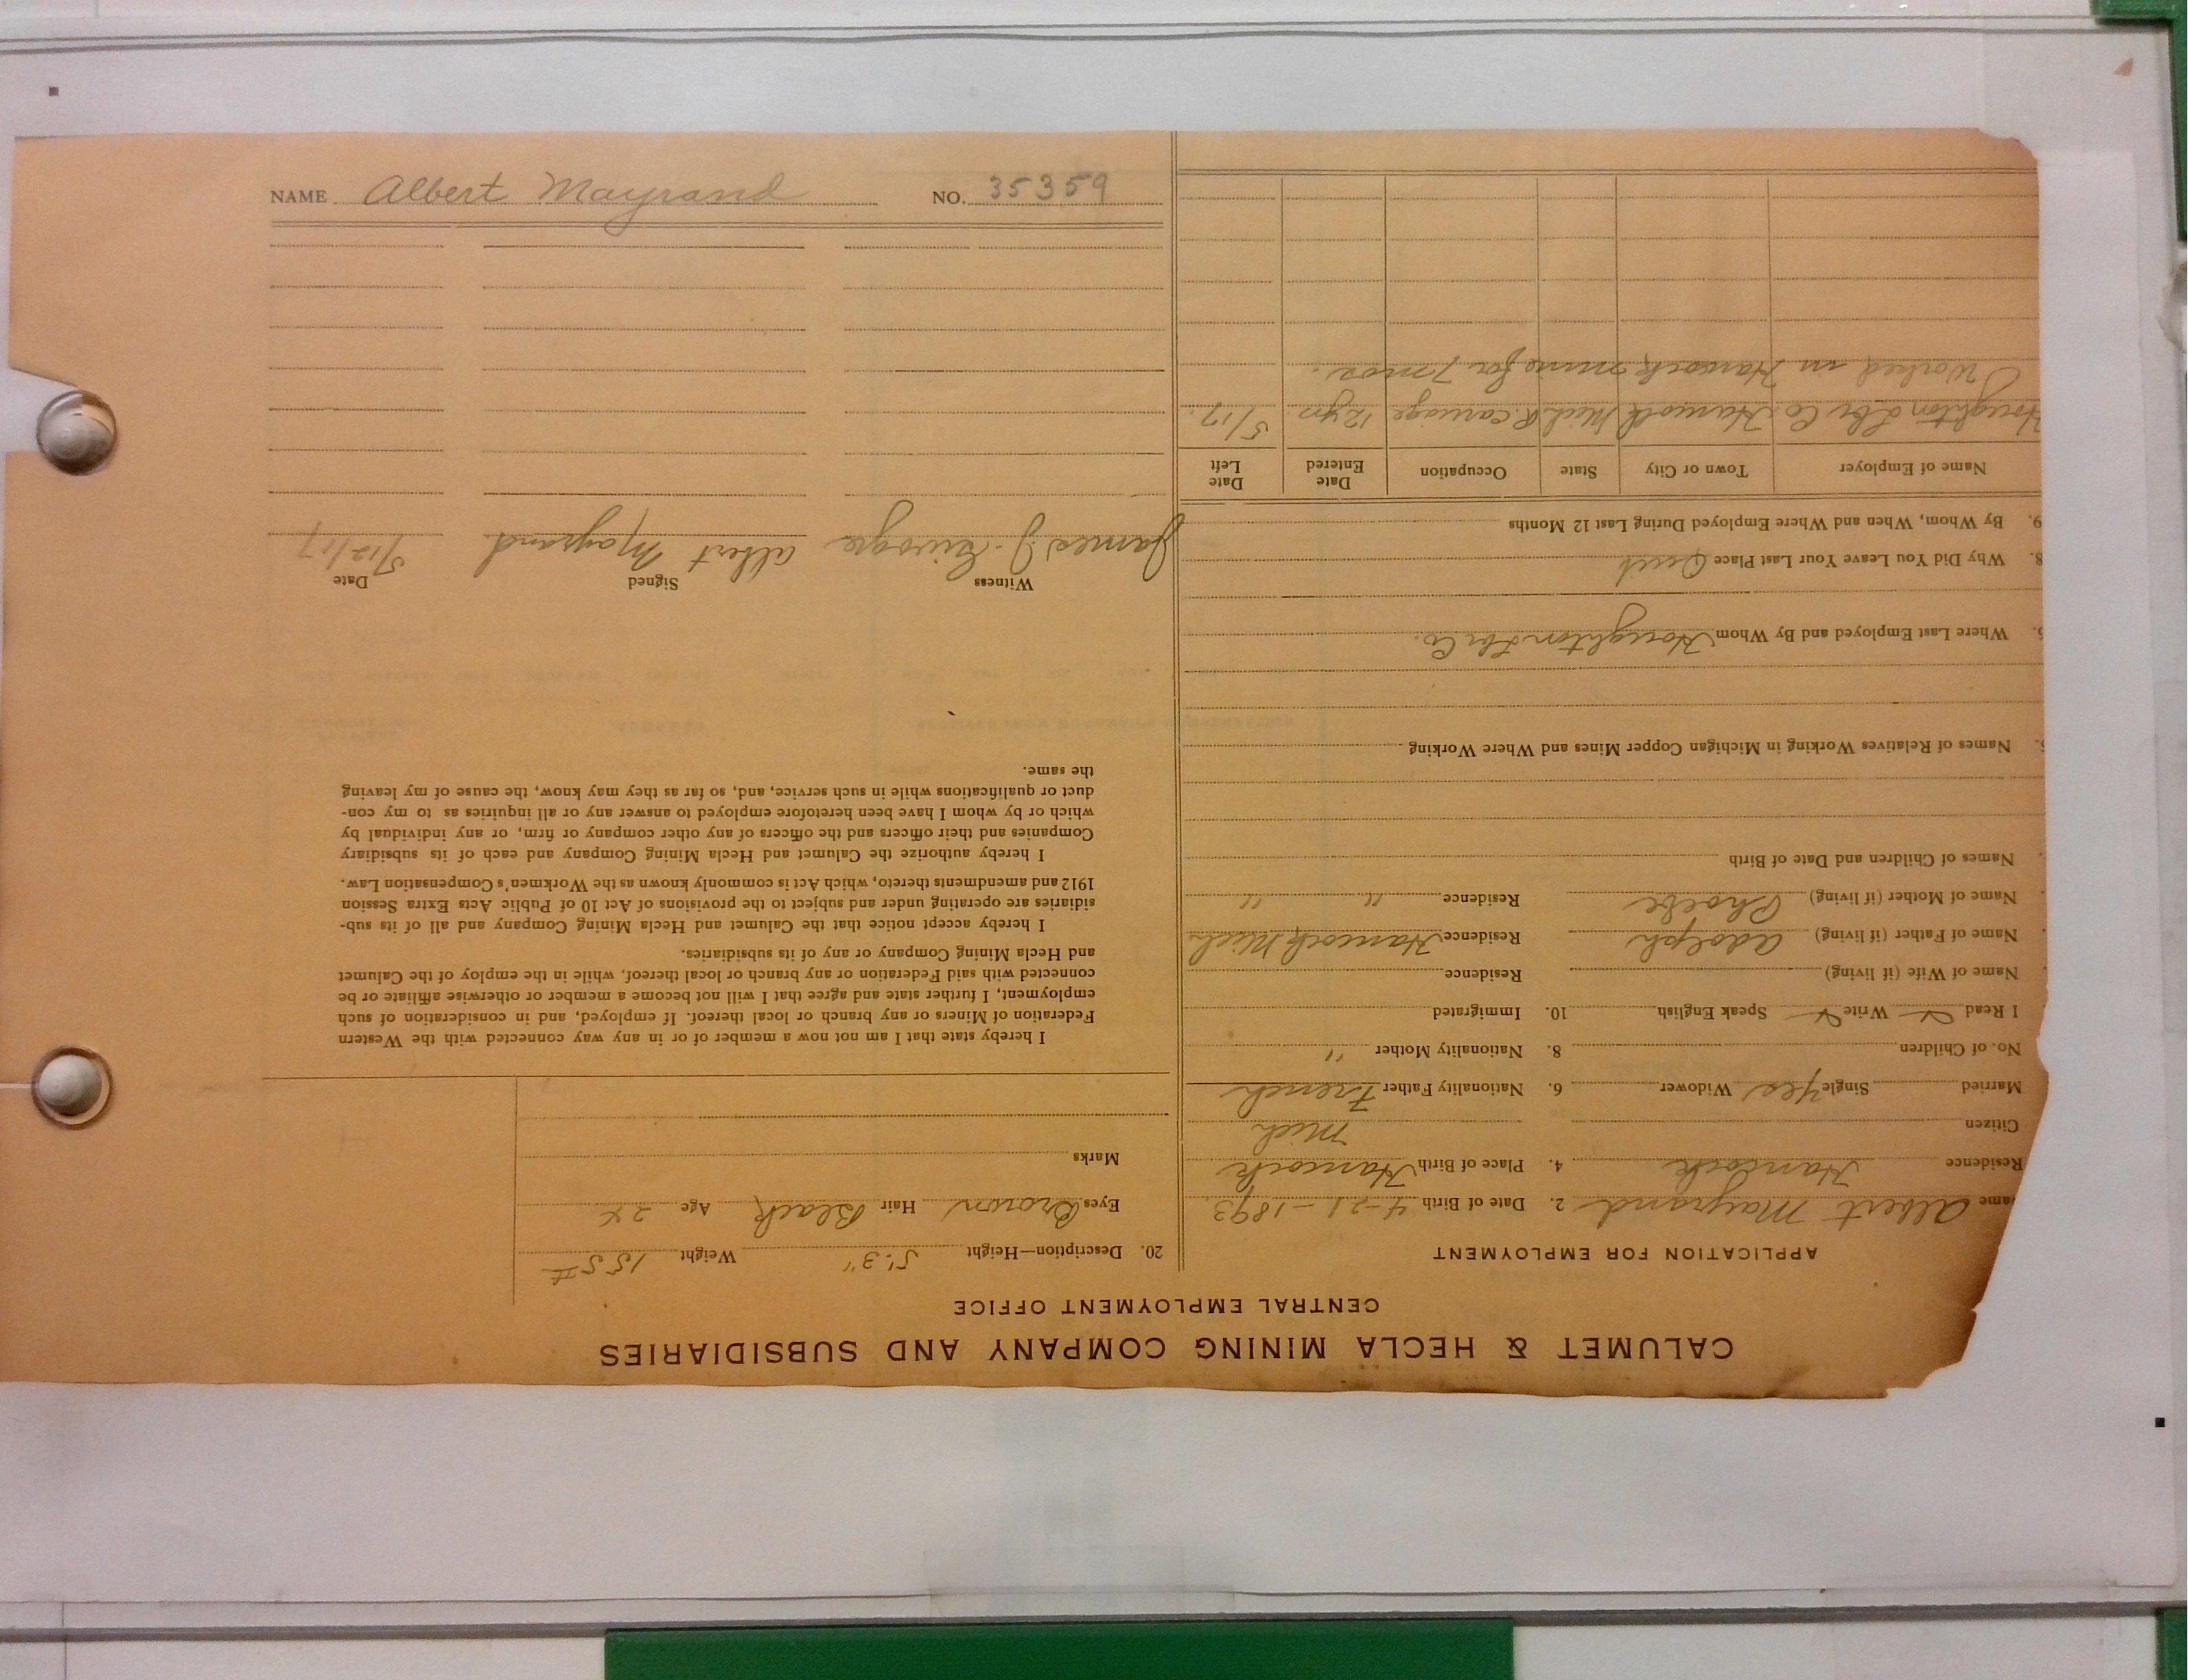 NAME Albert Mayrand NO. 35359
CALUMET & HECLA MINING COMPANY AND SUBSIDIARIES
CENTRAL EMPLOYMENT OFFICE
APPLICATION FOR EMPLOYMENT
ame Albert Mayrand 2. Date of Birth 4-21-1893
Residence Hancock 4. Place of Birth Hancock
Citizen Mich
Married Single Yes Widower 6. Nationality Father French
No. of Children 8. Nationality Mother "
I Read Write Speak English 10. Immigrated
Name of Wife (if living) Residence
Name of Father (if living) Adolph Residence Hancock Mich
Name of Mother (if living) Phoebe Residence " "
Names of Children and Date of Birth
Names of Relatives Working in Michigan Copper Mines and Where Working
Where Last Employed and By Whom Houghton Lbr Co.
8. Why Did You Leave Your Last Place Quit
9. By Whom, When and Where Employed During Last 12 Months
Name of Employer Town or City State Occupation Date Entered Date Left
Houghton Lbr Co. Hancock Mich R. carriage 12 yrs 5/17.
Worked in Hancock mine for 7 mos.
20. Description—Height 5'.3" Weight 155 #
Eyes Brown Hair Black Age 24
Marks
I hereby state that I am not now a member of or in any way connected with the Western
Federation of Miners or any branch or local thereof. If employed, and in consideration of such
employment, I further state and agree that I will not become a member or otherwise affiliate or be
connected with said Federation or any branch or local thereof, while in the employ of the Calumet
and Hecla Mining Company or any of its subsidiaries.
I hereby accept notice that the Calumet and Hecla Mining Company and all of its sub-
sidiaries are operating under and subject to the provisions of Act 10 of Public Acts Extra Session
1912 and amendments thereto, which Act is commonly known as the Workmen's Compensation Law.
I hereby authorize the Calumet and Hecla Mining Company and each of its subsidiary
Companies and their officers and the officers of any other company or firm, or any individual by
which or by whom I have been heretofore employed to answer any or all inquiries as to my con-
duct or qualifications while in such service, and, so far as they may know, the cause of my leaving
the same.
Witness Signed Date
James J. Albert Mayrand 5/12/17